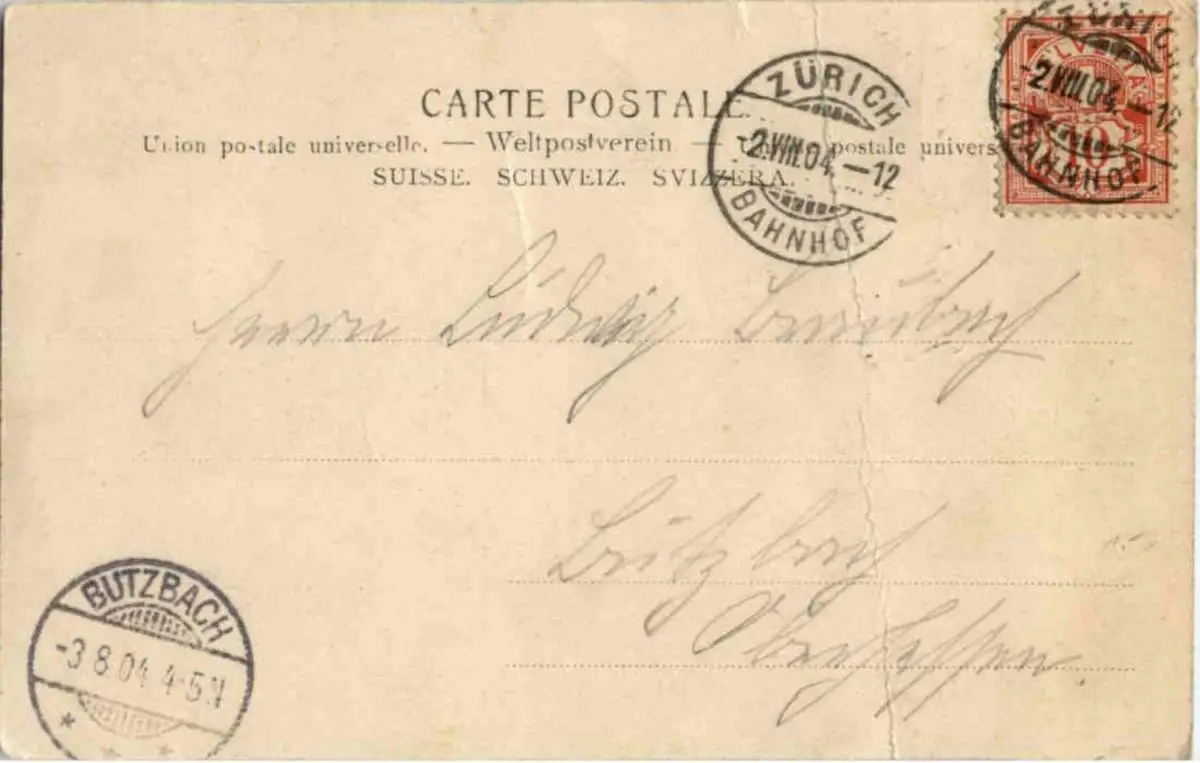 CARTE POSTALE.
Union postale universelle. — Weltpostverein — postale univers
SUISSE. SCHWEIZ. SVIZZERA.
ZÜRICH
-2.VIII.04.-12
BAHNHOF
ZÜRIC
-2.VIII.04.-12
BAHNHOF
10
Herrn Ludwig
Butzbach
Oberhessen.
BUTZBACH
-3.8.04. 4-5N